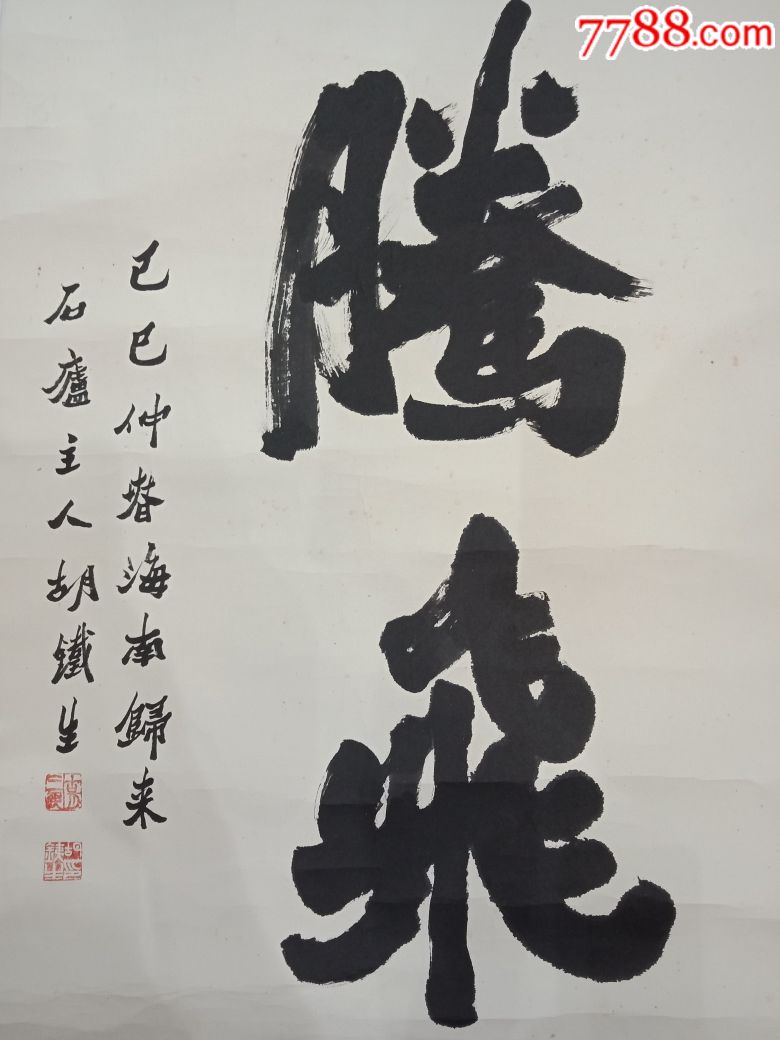 7788.com
騰飛
己巳仲春海南歸来
石廬主人胡鐵生